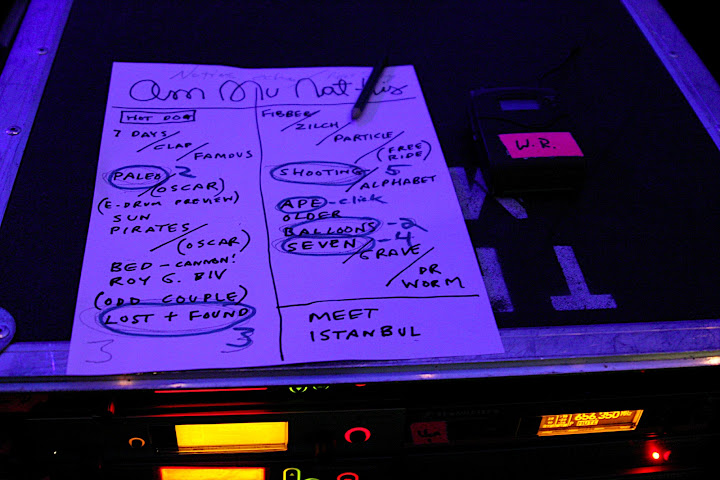 Am Mu Nat-His
HOT DOG
7 DAYS/
CLAP/
FAMOUS
PALEO 2
/(OSCAR)
(E-DRUM PREVIEW)
SUN
PIRATES/
(OSCAR)
BED - CANNON!
ROY G. BIV
(ODD COUPLE)
LOST + FOUND
3 3
FIBBER/
ZILCH/
PARTICLE/
(FREE RIDE)
SHOOTING 5
/ALPHABET
APE - click
OLDER
BALLOONS - 2
SEVEN - 4
/GRAVE
/DR
WORM
MEET
ISTANBUL
W.R.
656.350